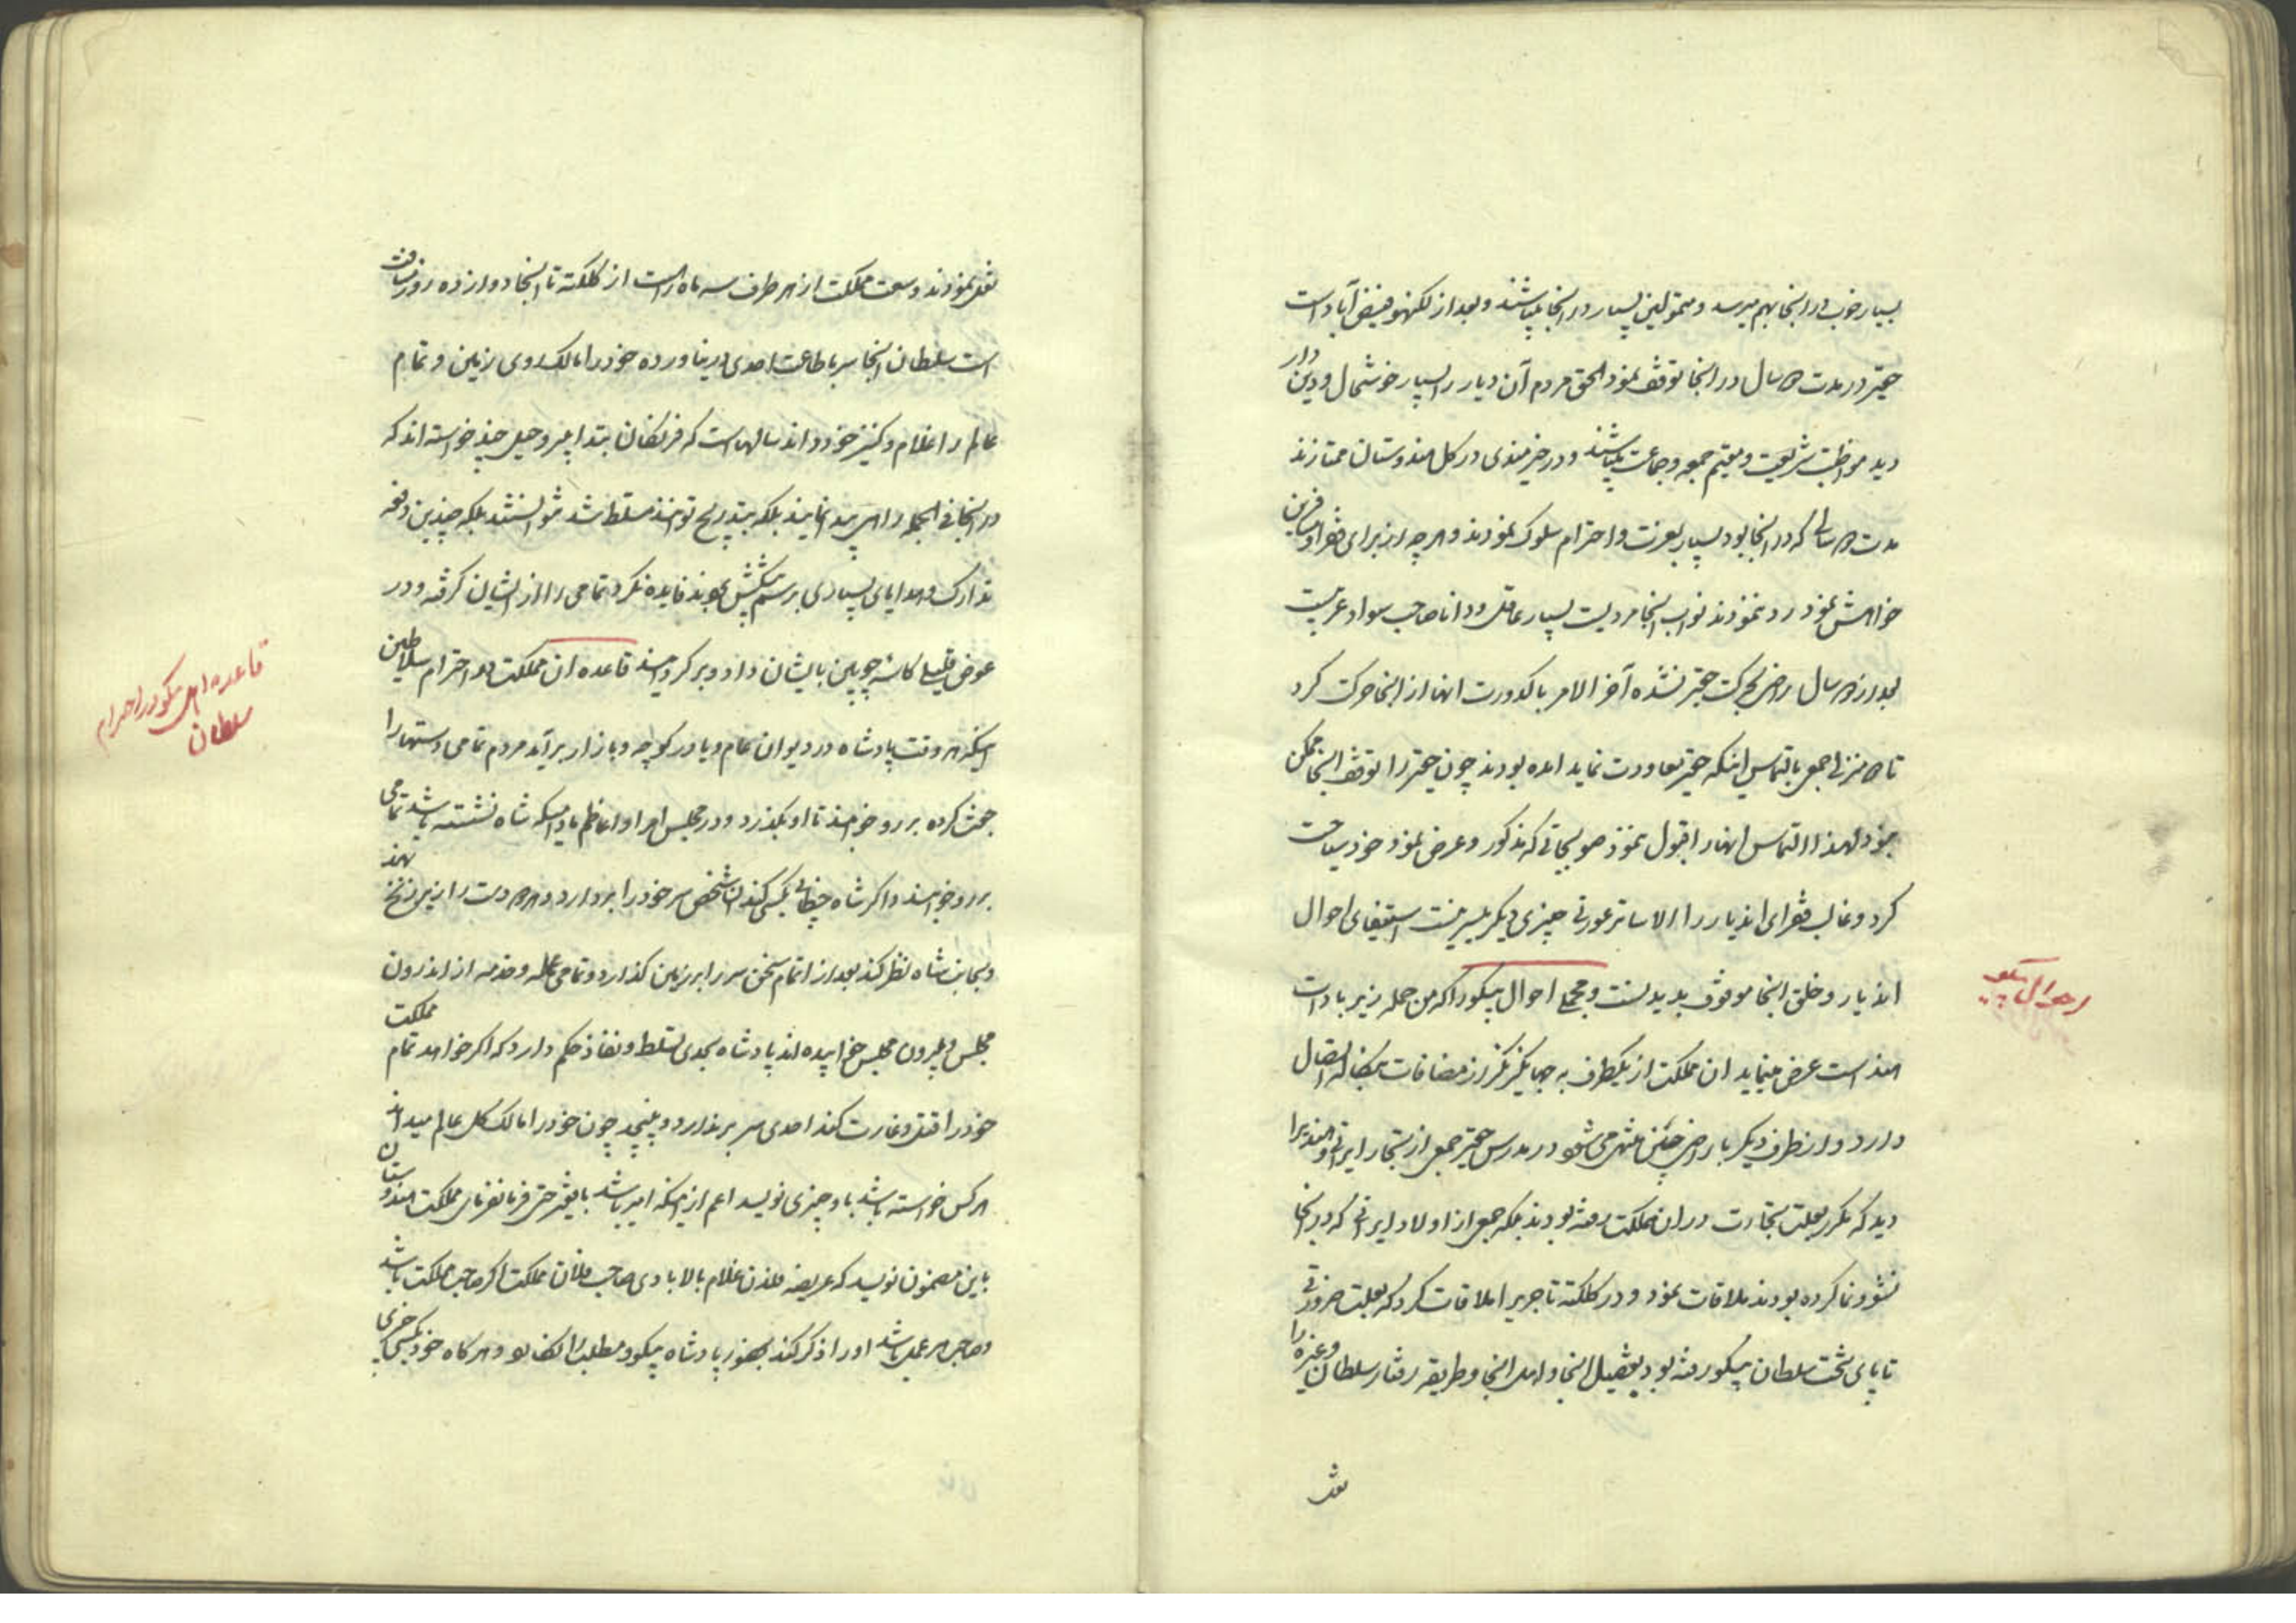 بسیار خوب در انجا بهم میرسد و متمولین بسیار در انجا میباشند و بعد از لکهنو فیض آباد است
حقیر در مدت ۵ سال در انجا توقف نمود الحق مردم آن دیار را بسیار خوشحال و دین دار
دید مواظب شریعت و مقیم جمعه و جماعت میباشند و در خیرمندی در کل هندوستان ممتازند
مدت ۵ سالی که در انجا بود بسیار بعزت و احترام سلوک نمودند و هر چه از برای فقرا و مسافرین
خواهش نمود رد ننمودند نواب انجا مردیست بسیار عاقل و دانا صاحب سواد عربیت
بعد از ۵ سال راضی بحرکت حقیر نشده آخر الامر با کدورت انها از انجا حرکت کرد
تا ۵ منزلی جمعی بالتماس اینکه حقیر معاودت نماید امده بودند چون حقیر را توقف انجا ممکن
نبود لهذا التماس انها را قبول ننمود صوبجاتی که مذکور و عرض نمود خود سیاحت
کرد و غالب فقرای اندیار را الا ساتر عورتی چیزی دیگر میسر نیست استیفای احوال
اندیار و خلق انجا موقوف بدیدنست و مجملی احوال پیکو را که من جمله زیر بادات
هند است عرض مینماید ان مملکت از یکطرف به جهانگیرنگر از مضافات بنگاله اتصال
دارد و از طرف دیگر باراضی چین منتهی می شود در مدرس حقیر جمعی از تجار ایرانی و هندی را
دید که مکرر بعلت تجارت در ان مملکت رفته بودند بلکه جمعی از اولاد ایرانی که در انجا
نشو و نما کرده بودند ملاقات نمود و در کلکته تاجری را ملاقات کرد که بعلت ضرورتی
تا پای تخت سلطان پیکو رفته بود تفصیل انجا و اهل انجا و طریقه رفتار سلطان و غیره را
نقل
احوال پیکو
نقل نمودند وسعت مملکت از هر طرف سه ماه راه است از کلکته تا انجا دوازده روز مسافت
است سلطان انجا سر باطاعت احدی در نیاورده خود را مالک روی زمین و تمام
عالم را غلام و کنیز خود داند سالهاست که فرنگان بتدابیر و حیل چند خواسته اند که
در انجا فی الجمله راهی پیدا نمایند بلکه بتدریج توانند مسلط شد نتوانستند بلکه چندین دفعه
تدارک و هدایای بسیاری برسم پیشکش بردند فایده نکرد تمامی را از ایشان گرفته و در
عوض قلیلی کاسه چوبین بایشان داد و برگردانید قاعده ان مملکت در احترام سلاطین
اینکه هر وقت پادشاه در دیوان عام و یا در کوچه و بازار برآید مردم تمامی دستها را
جمع کرده بر رو خوابند تا او بگذرد و در مجلس امرا و اعاظم مادامیکه شاه نشسته باشد تمامی
بر رو خوابند و اگر شاه خطابی بکسی کند ان شخص سر خود را بردارد و هر ۲ دست را زیر زنخ نهد
و بجانب شاه نظر کند بعد از اتمام سخن سر را بر زمین گذارد و تمامی عمله و خدمه از اندرون
مجلس و بیرون مجلس خوابیده اند پادشاه بحدی تسلط و نفاذ حکم دارد که اگر خواهد تمام مملکت
خود را قتل و غارت کند احدی سر برندارد و نپیچد چون خود را مالک کل عالم میداند
هر کس خواسته باشد باو چیزی نویسد اعم از اینکه امیر باشد یا فقیر حتی فرمانفرمای مملکت هندوستان
باین مضمون نویسد که عریضه فلان غلام بالابادی صاحب فلان مملکت اگر صاحب مملکت باشد
و صاحب هر عمل باشد او را ذکر کند بحضور پادشاه پیکو و مطلب را و هر گاه خود بکسی چیزی
قاعده اهل پیکو در احترام
سلطان